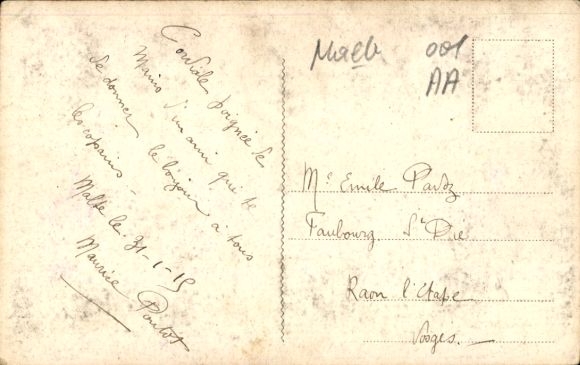 Cordiale poignée de
Mains d'un ami qui te
de donner le bonjour à tous
les copains -
Malte le 31-1-15
Maurice
Malte 001
AA
Mr Emile
Faubourg St Dié
Raon l'Etape
Vosges.